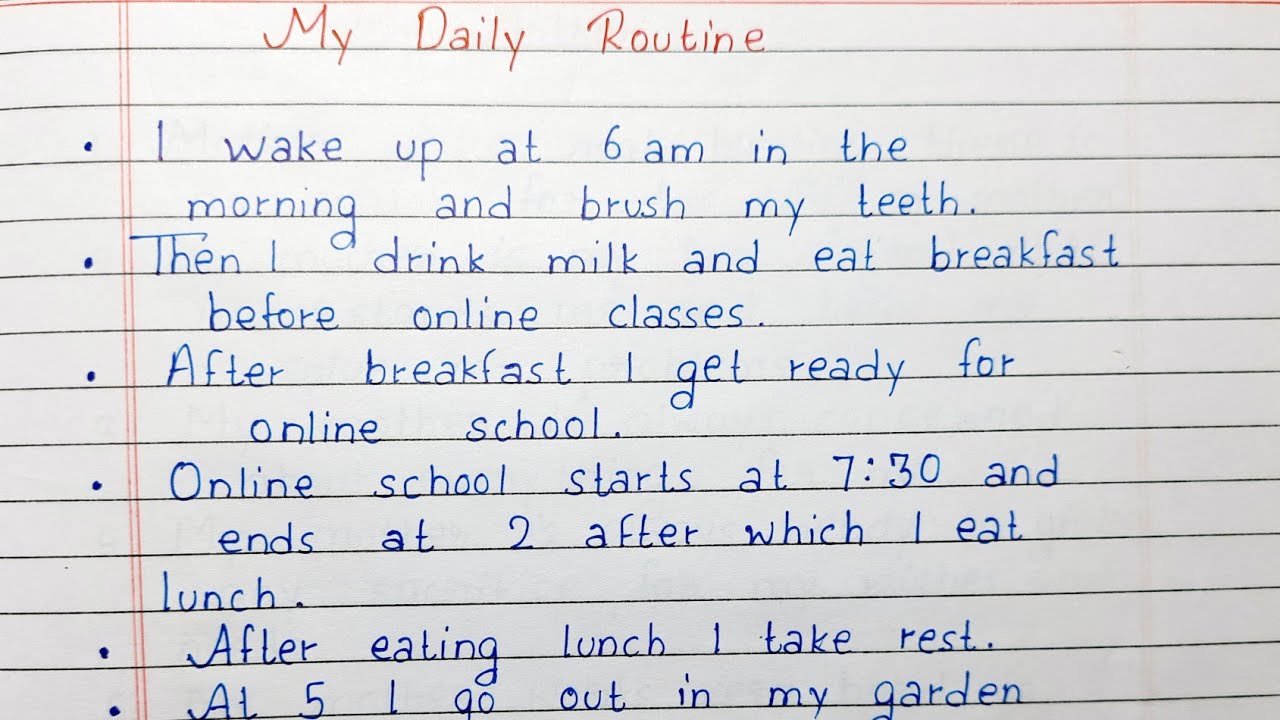 My Daily Routine
• I wake up at 6 am in the
morning and brush my teeth.
• Then I drink milk and eat breakfast
before online classes.
• After breakfast I get ready for
online school.
• Online school starts at 7:30 and
ends at 2 after which I eat
lunch.
• After eating lunch I take rest.
• At 5 I go out in my garden